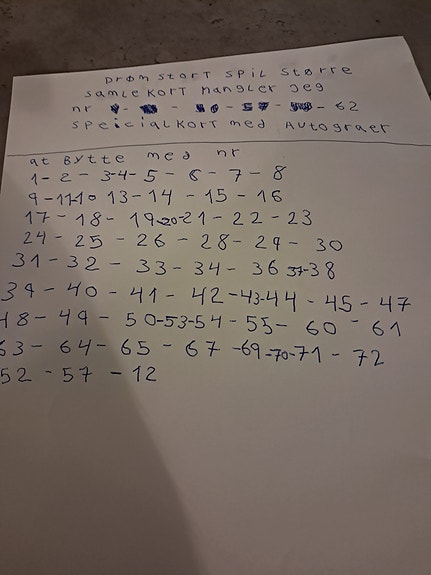 Drøm stort spil større
samlekort mangler jeg
nr - - - 57 - - 62
speicialkort med Autograer
at Bytte med nr
1 - 2 - 3-4- 5 - 6 - 7 - 8
9 -11-10 13 - 14 - 15 - 16
17 - 18 - 19-20-21 - 22 - 23
24 - 25 - 26 - 28 - 29 - 30
31 - 32 - 33 - 34 - 36 37-38
39 - 40 - 41 - 42 -43-44 - 45 - 47
48 - 49 - 50-53-54 - 55 - 60 - 61
63 - 64 - 65 - 67 -69-70-71 - 72
52 - 57 - 12